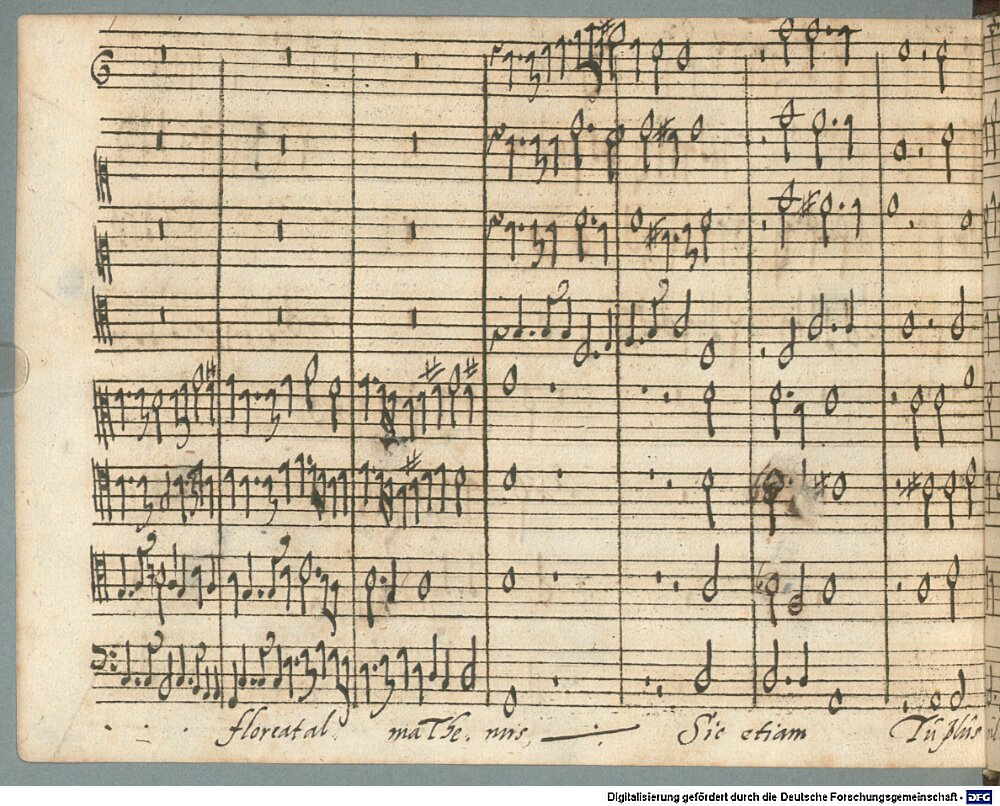 floreat al maThe. nus, Sic etiam Tu plus
Digitalisierung gefördert durch die Deutsche Forschungsgemeinschaft - DFG